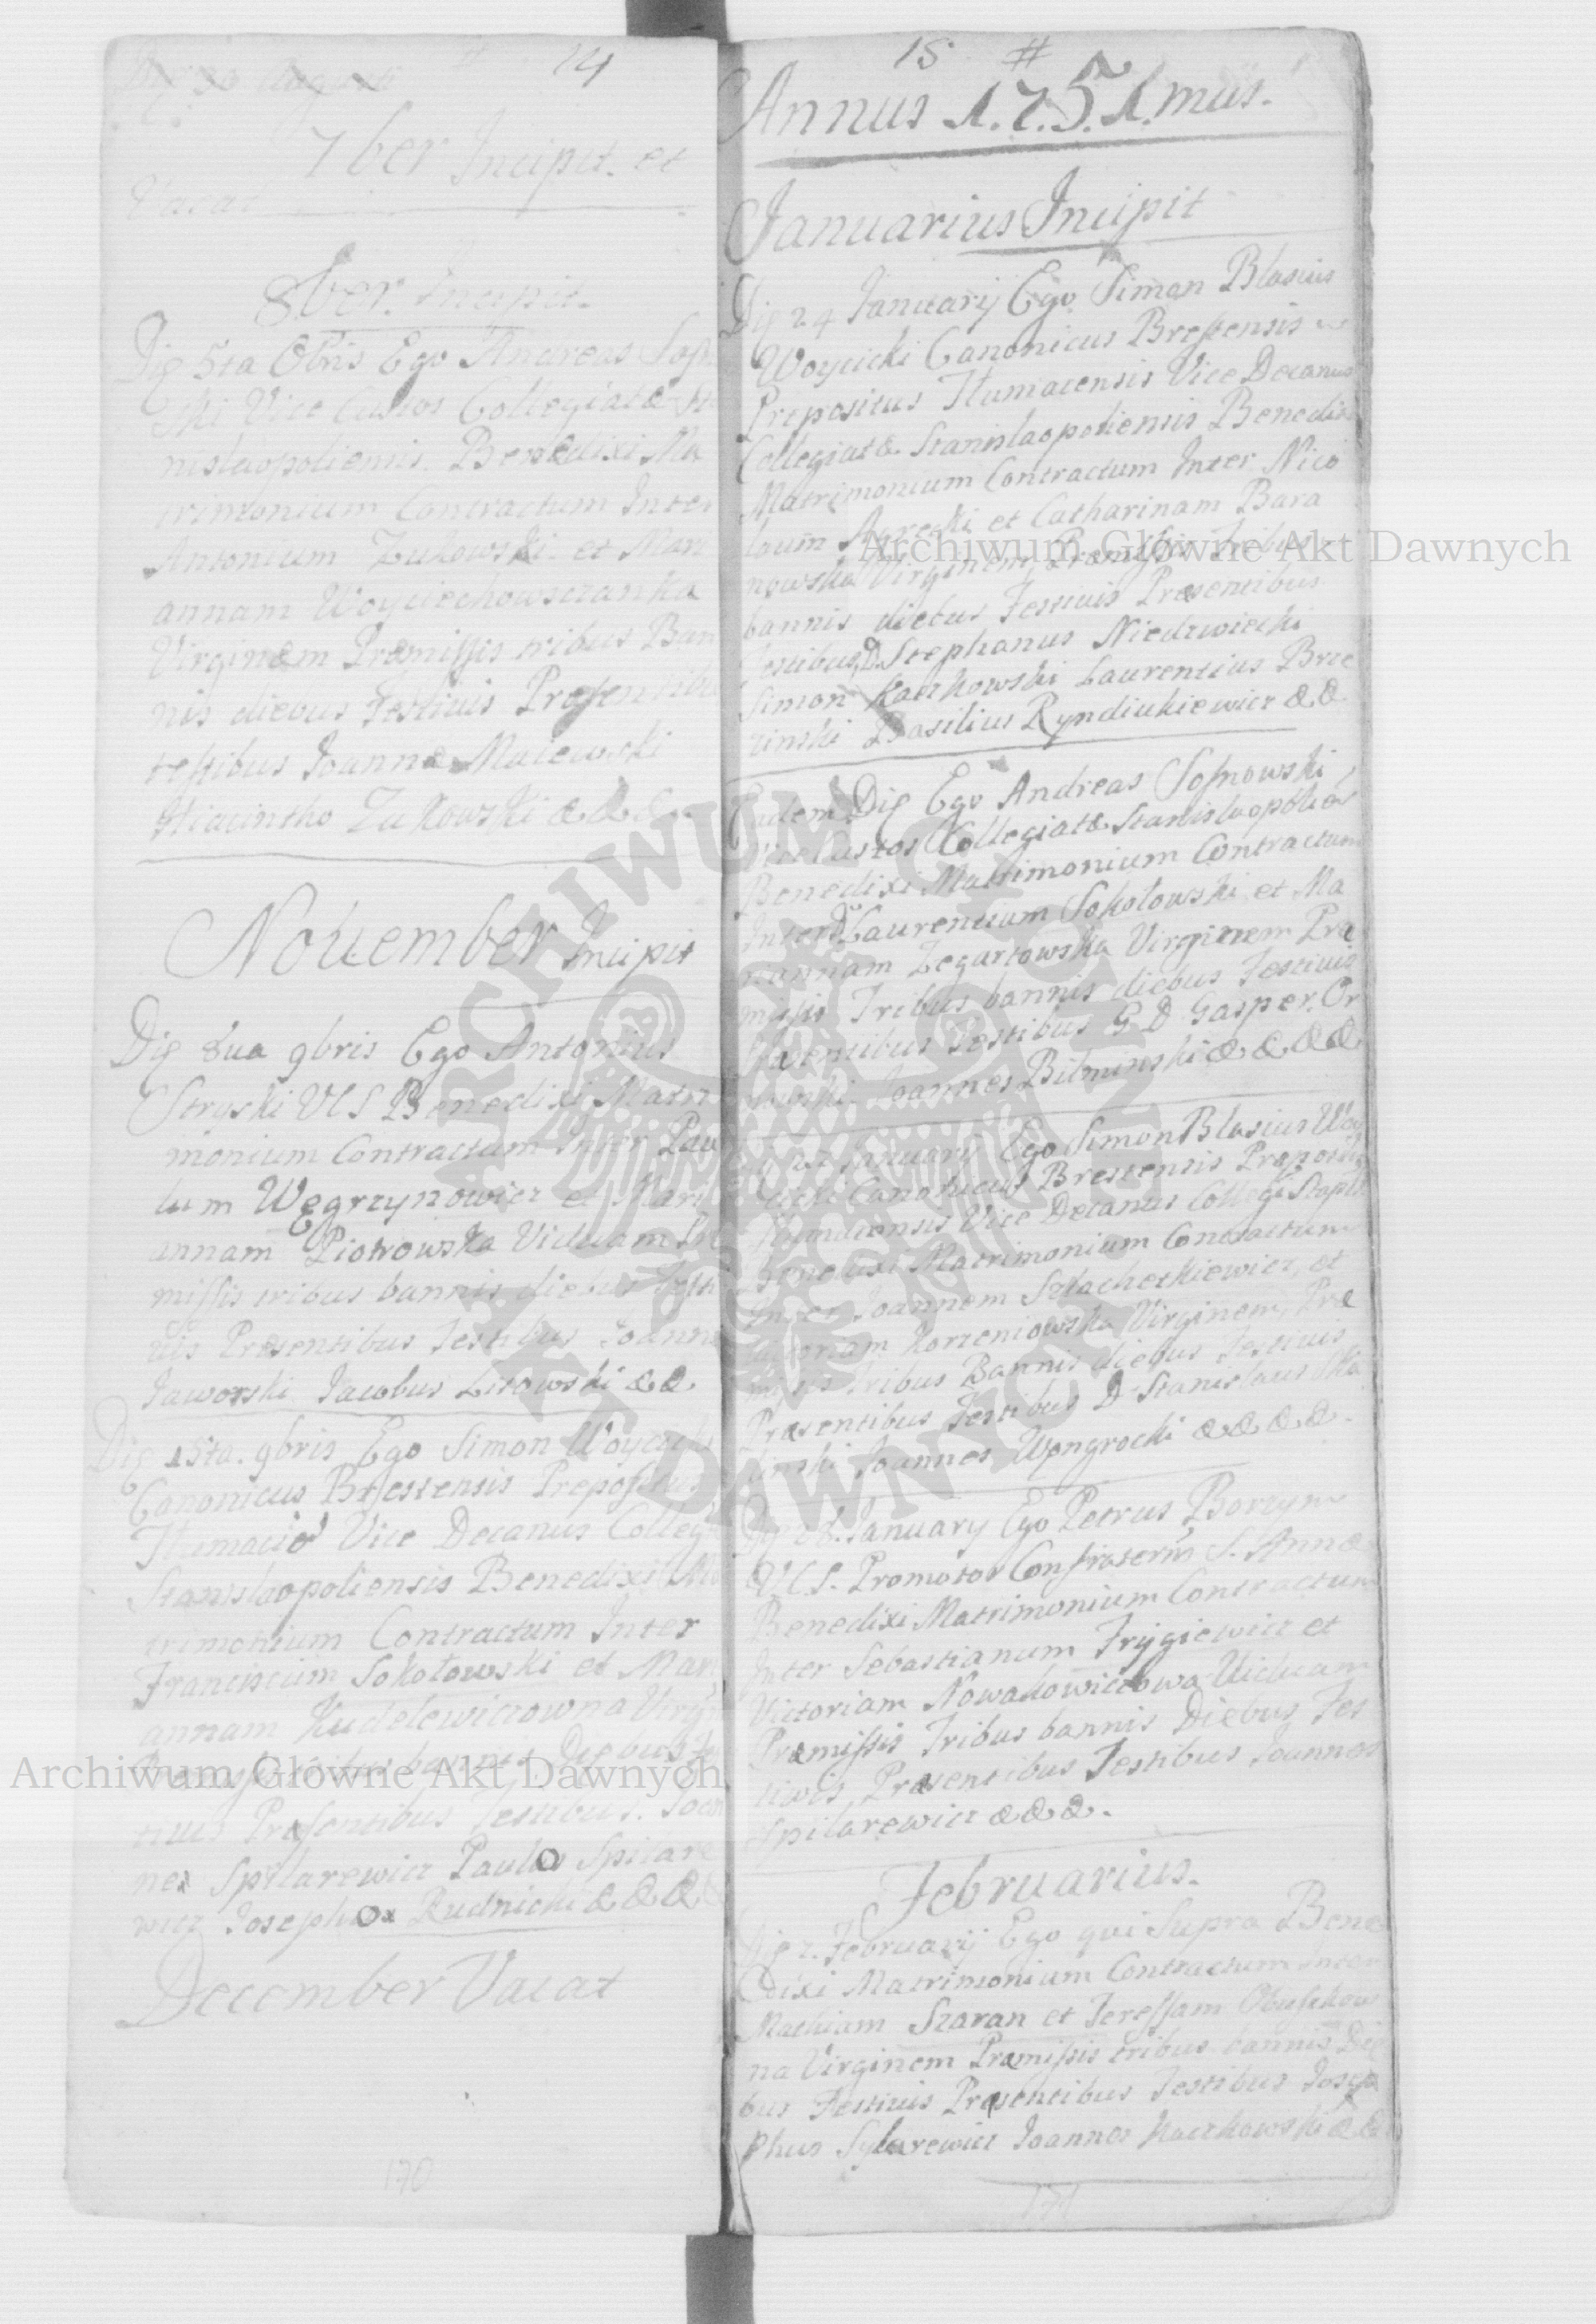 14
7ber Incipit. et
Vacat
8ber. Incipit.
Die 5ta 8bris Ego Andreas Sos
ski Vice Custos Collegiatæ Sta
nislaopoliensis Benedixi Ma
trimonium Contractum Inter
Antonium Zukowski et Mari
annam Woyciechowszczanka
Virginem Præmissis tribus Ban
nis diebus Festivis Præsentibu
testibus Joanne Maiewski
Hiacintho Zukowski & & &
November Incipit
Die 8va 9bris Ego Antonius
Stryski VCS Benedixi Matri
monium Contractum Inter Pau
lum Węgrzynowicz et Mari
annam Piotrowska Viduam Præ
missis tribus bannis diebus festi
vis Præsentibus Testibus Joanne
Jaworski Jacobus Litowski & &
Die 15ta. 9bris Ego Simon Woycicki
Canonicus Brestensis Prepositus
Tłumacień Vice Decanus Colleg
Stanislaopoliensis Benedixi Ma
trimonium Contractum Inter
Franciscum Sokołowski et Mari
annam Kudelewiczowna Virgi
Præmissis tribus bannis Diebus Fes
tivis Præsentibus Testibus. Joan
nes Spilarewicz Paulo Spilare
wicz Josepho Rudnicki & & &
December Vacat
170
15 #
Annus 1.7.5.1.mus.
Januarius Incipit
Die 24 Januarij Ego Simon Blasius
Woycicki Canonicus Brestensis
Prepositus Tłumacensis Vice Decanus
Collegiatæ Stanislaopoliensis Benedixi
Matrimonium Contractum Inter Nico
laum et Catharinam Bara
nowska Virginem Præmissis Tribus
bannis diebus Festivis Præsentibus
Testibus D. Stephanus Niedzwiecki
Simon Kaczkowski Laurentius Brze
zinski Basilius Ryndiukiewicz & &
Eadem Die Ego Andreas Sosnowski
Vice Custos Collegiatæ Stanislaopolień
Benedixi Matrimonium Contractum
Inter D Laurentium Sokołowski et Ma
riannam Zegartowska Virginem Præ
missis Tribus bannis diebus Festivis
Præsentibus Testibus G. D. Gasper Or
Joannes Bilminski & & & &
Januarij Ego Simon Blasius Woy
cicki Canonicus Brestensis Præposit
Tłumacensis Vice Decanus Colleg Staplis
Benedixi Matrimonium Contractum
Inter Joannem Szlachetkiewicz, et
Korzeniowska Virginem, Præ
missis Tribus Bannis diebus Festivis
Præsentibus Testibus D Stanislaus Ska
linski Joannes Wengrocki & & & &
Die 28. January Ego Petrus Borzym
VCS. Promotor Confratern S. Annæ
Benedixi Matrimonium Contractum
Inter Sebastianum Frygiewicz et
Victoriam Nowakowiczowa Viduam
Præmissis Tribus bannis Diebus Fes
tivis, Præsentibus Testibus Joannes
Spilarewicz & & &.
Februarius.
Die 2. Februarij Ego qui Supra Bene
dixi Matrimonium Contractum Inter
Mathiam Szaran et Teressam
na Virginem Præmissis tribus bannis Die
bus Festivis Præsentibus Testibus Jose
phus Sylarewicz Joannes Kaczkowski & &
171
Archiwum Główne Akt Dawnych
Archiwum Główne Akt Dawnych
ARCHIWUM GŁÓWNE AKT DAWNYCH